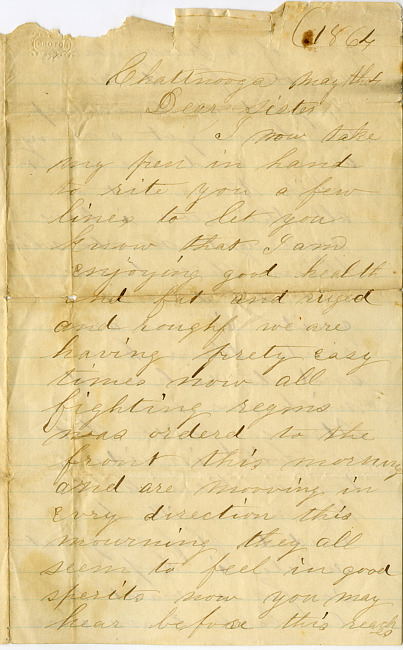 (1864
Chattnooga may th4
Dear Sister
I now take
my pen in hand
to rite you a few
lines to let you
know that I am
enjoying good health
and fat and ruged
and rough we are
having prety easy
times now all
fighting regms
was orderd to the
front this morning
and are mooving in
evry direction this
mourning they all
seem to feel in good
sperits now you may
hear before this reaches